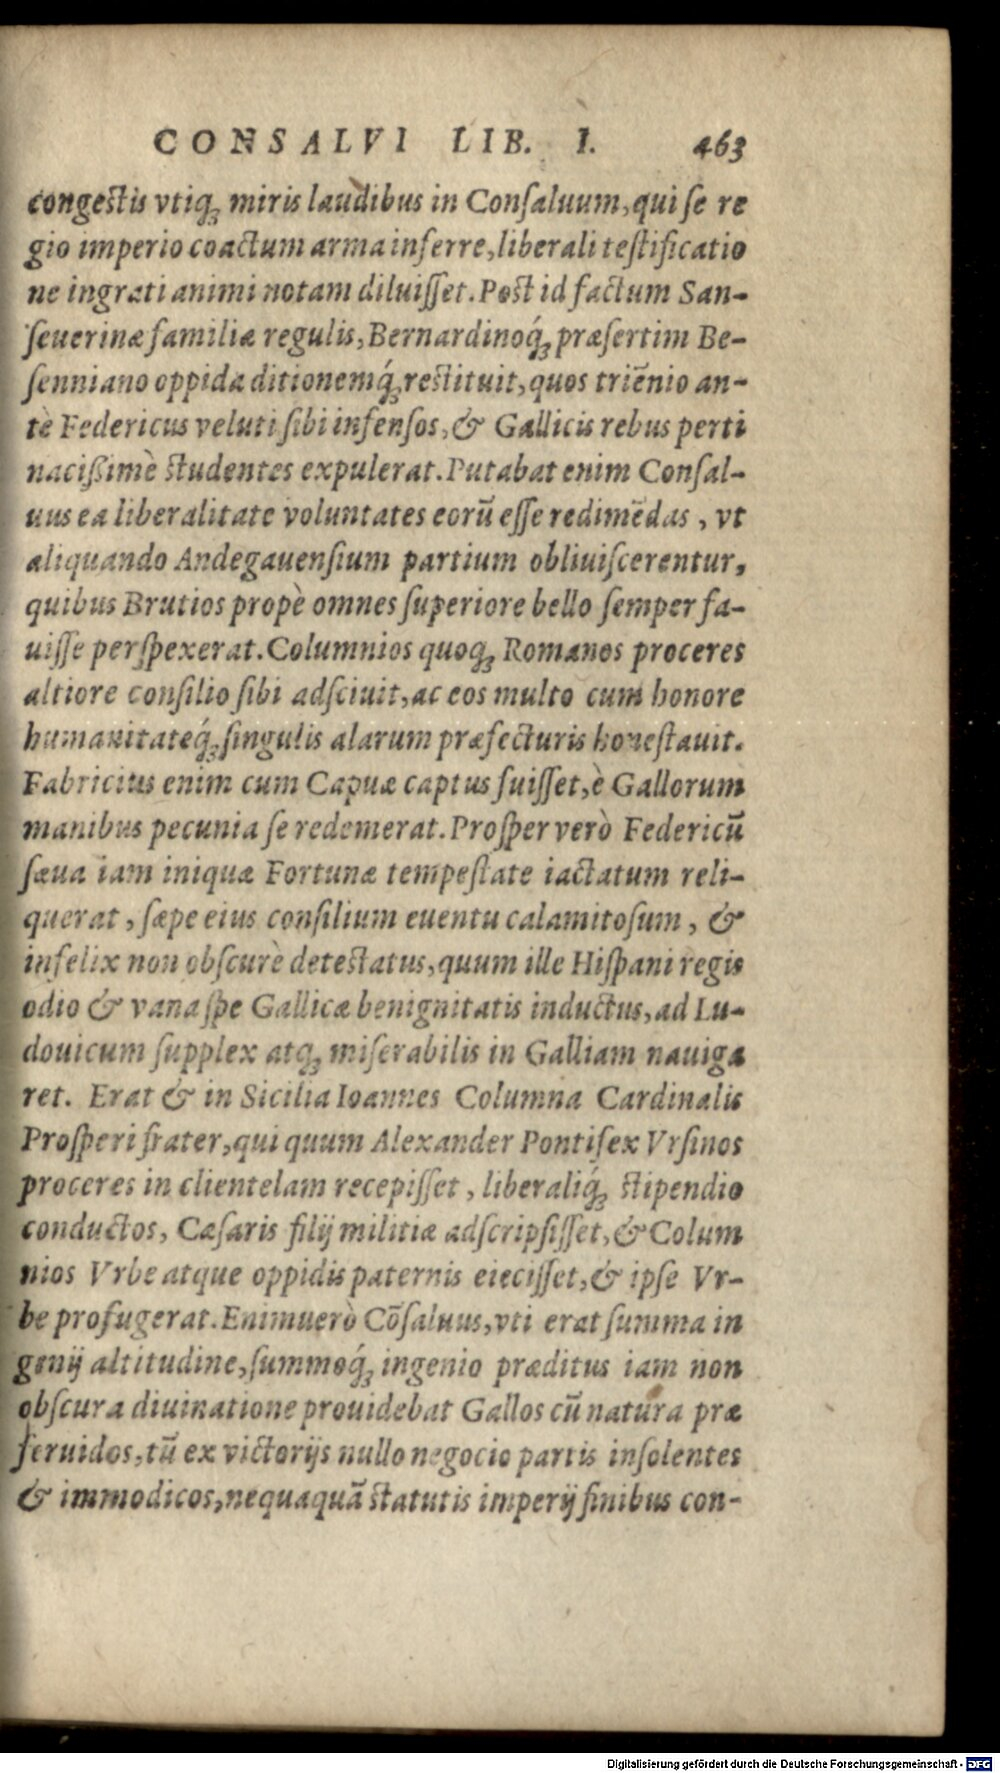 CONSALVI LIB. I. 463
congestis vtiq; miris laudibus in Conſaluum, qui ſe re
gio imperio coactum arma inferre, liberali teſtificatio
ne ingrati animi notam diluiſſet. Post id factum San-
ſeuerinæ familiæ regulis, Bernardinoq́; præſertim Be-
ſenniano oppida ditionemq́; restituit, quos triēnio an-
tè Federicus veluti ſibi infenſos, & Gallicis rebus perti
naciſsimè studentes expulerat. Putabat enim Conſal-
uus ea liberalitate voluntates eorū eſſe redimēdas, vt
aliquando Andegauenſium partium obliuiſcerentur,
quibus Brutios propè omnes ſuperiore bello ſemper fa-
uiſſe perſpexerat. Columnios quoq; Romanos proceres
altiore conſilio ſibi adſciuit, ac eos multo cum honore
humanitateq́; ſingulis alarum præfecturis honeſtauit.
Fabricius enim cum Capuæ captus fuiſſet, è Gallorum
manibus pecunia ſe redemerat. Proſper verò Federicū
ſæua iam iniquæ Fortunæ tempeſtate iactatum reli-
querat, ſæpe eius conſilium euentu calamitoſum, &
infelix non obſcurè detestatus, quum ille Hiſpani regis
odio & vana ſpe Gallicæ benignitatis inductus, ad Lu-
douicum ſupplex atq; miſerabilis in Galliam nauiga
ret. Erat & in Sicilia Ioannes Columna Cardinalis
Proſperi frater, qui quum Alexander Pontifex Vrſinos
proceres in clientelam recepiſſet, liberaliq́; stipendio
conductos, Cæſaris filij militiæ adſcripſiſſet, & Colum
nios Vrbe atque oppidis paternis eieciſſet, & ipſe Vr-
be profugerat. Enimuerò Cōſaluus, vti erat ſumma in
genij altitudine, ſummoq́; ingenio præditus iam non
obſcura diuinatione prouidebat Gallos cū natura præ
feruidos, tū ex victorijs nullo negocio partis inſolentes
& immodicos, nequaquā statutis imperij finibus con-
Digitalisierung gefördert durch die Deutsche Forschungsgemeinschaft - DFG